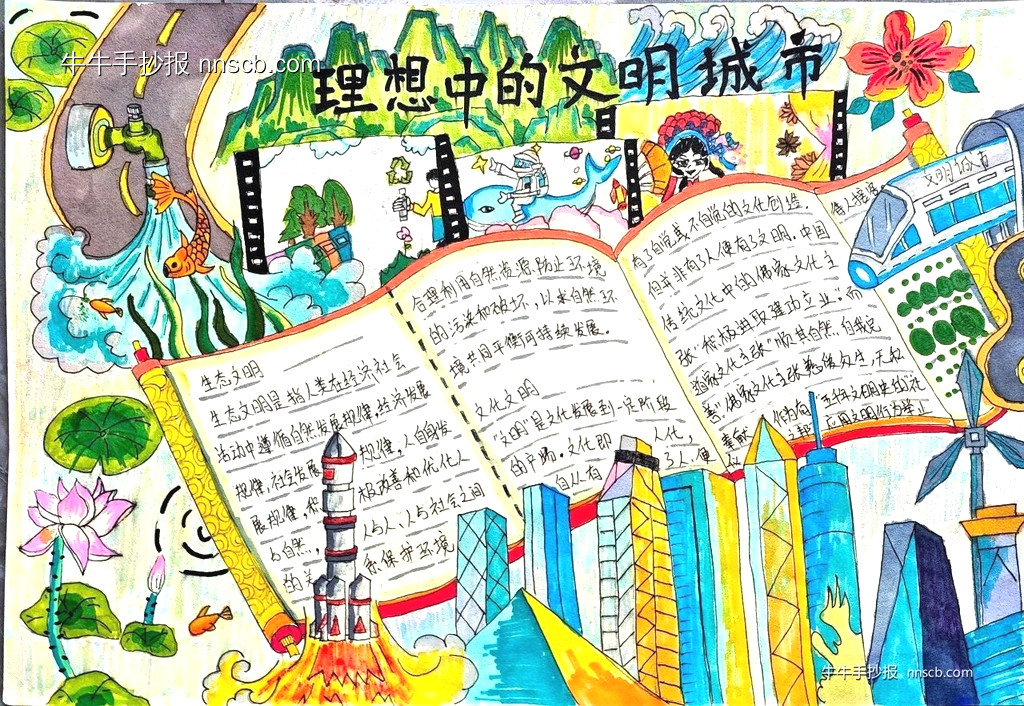 牛牛手抄报 nnscb.com
理想中的文明城市
文明城市
生态文明
生态文明是指人类在经济社会
活动中遵循自然发展规律经济发展
规律,社会发展规律,人自身发
展规律,积极改善和优化人
与自然,人与人,人与社会之间
的关系保护环境
合理利用自然资源,防止环境
的污染和破坏,以求自然环
境共同平衡可持续发展。
文化文明
"文明"是文化发展到一定阶段
的产物,文化即人化,
自从有了人,便
有了自觉或不自觉的文化创造。
但并非有了人便有了文明。中国
传统文化中的儒家文化主
张"积极进取建功立业"而
道家文化主张"顺其自然,自我完
善"佛家文化主张慈
奉献
牛牛手抄报 nnscb.com